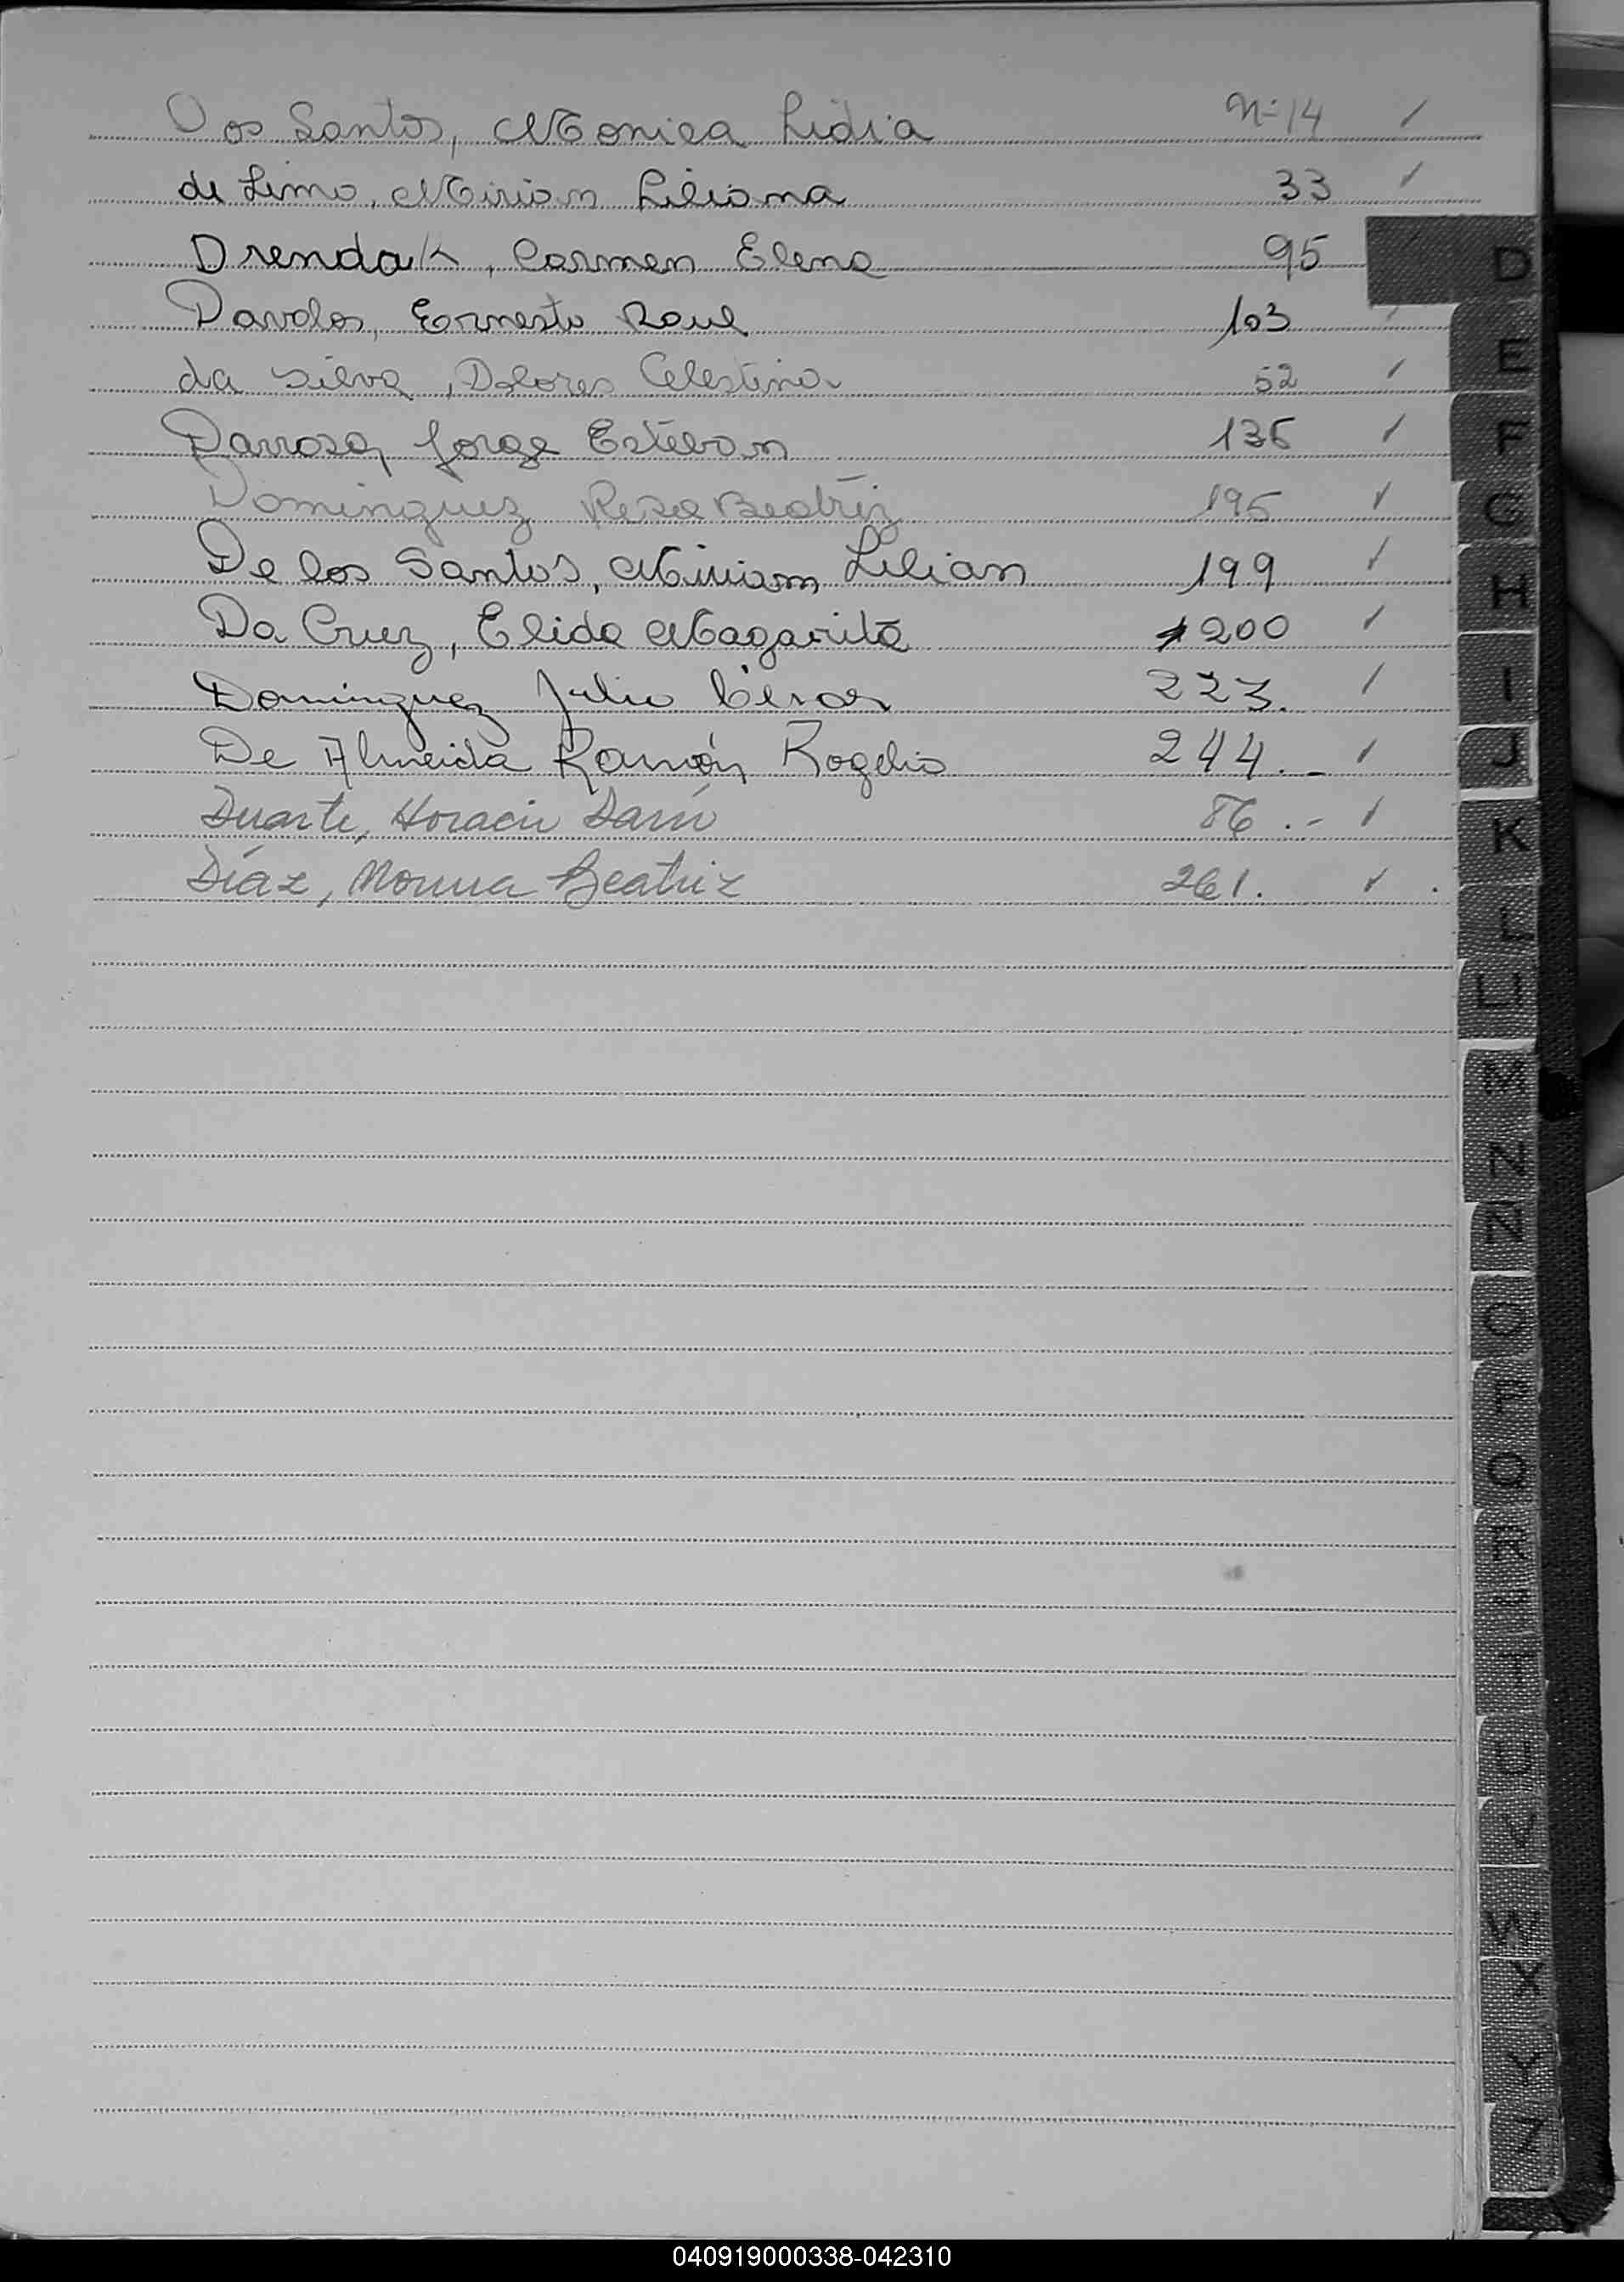 Dos Santos, Monica Lidia Nº 14 ✓
de Lima, Miriam Liliana 33 ✓
Drendak, Carmen Elena 95
Davalos, Ernesto Raul 103
da Silva, Dolores Celestina 52 ✓
Darrosa, Jorge Esteban 136 ✓
Dominguez Rosa Beatriz 195 ✓
De los Santos, Miriam Lilian 199 ✓
Da Cruz, Elida Magarita 200 ✓
Dominguez Julio César 223. ✓
De Almeida Ramón Rogelio 244.- ✓
Duarte, Horacio Darío 86.- ✓
Díaz, Norma Beatriz 261. ✓
D
E
F
G
H
I
J
K
L
LL
M
N
Ñ
O
P
Q
R
S
T
U
V
W
X
Y
Z
040919000338-042310